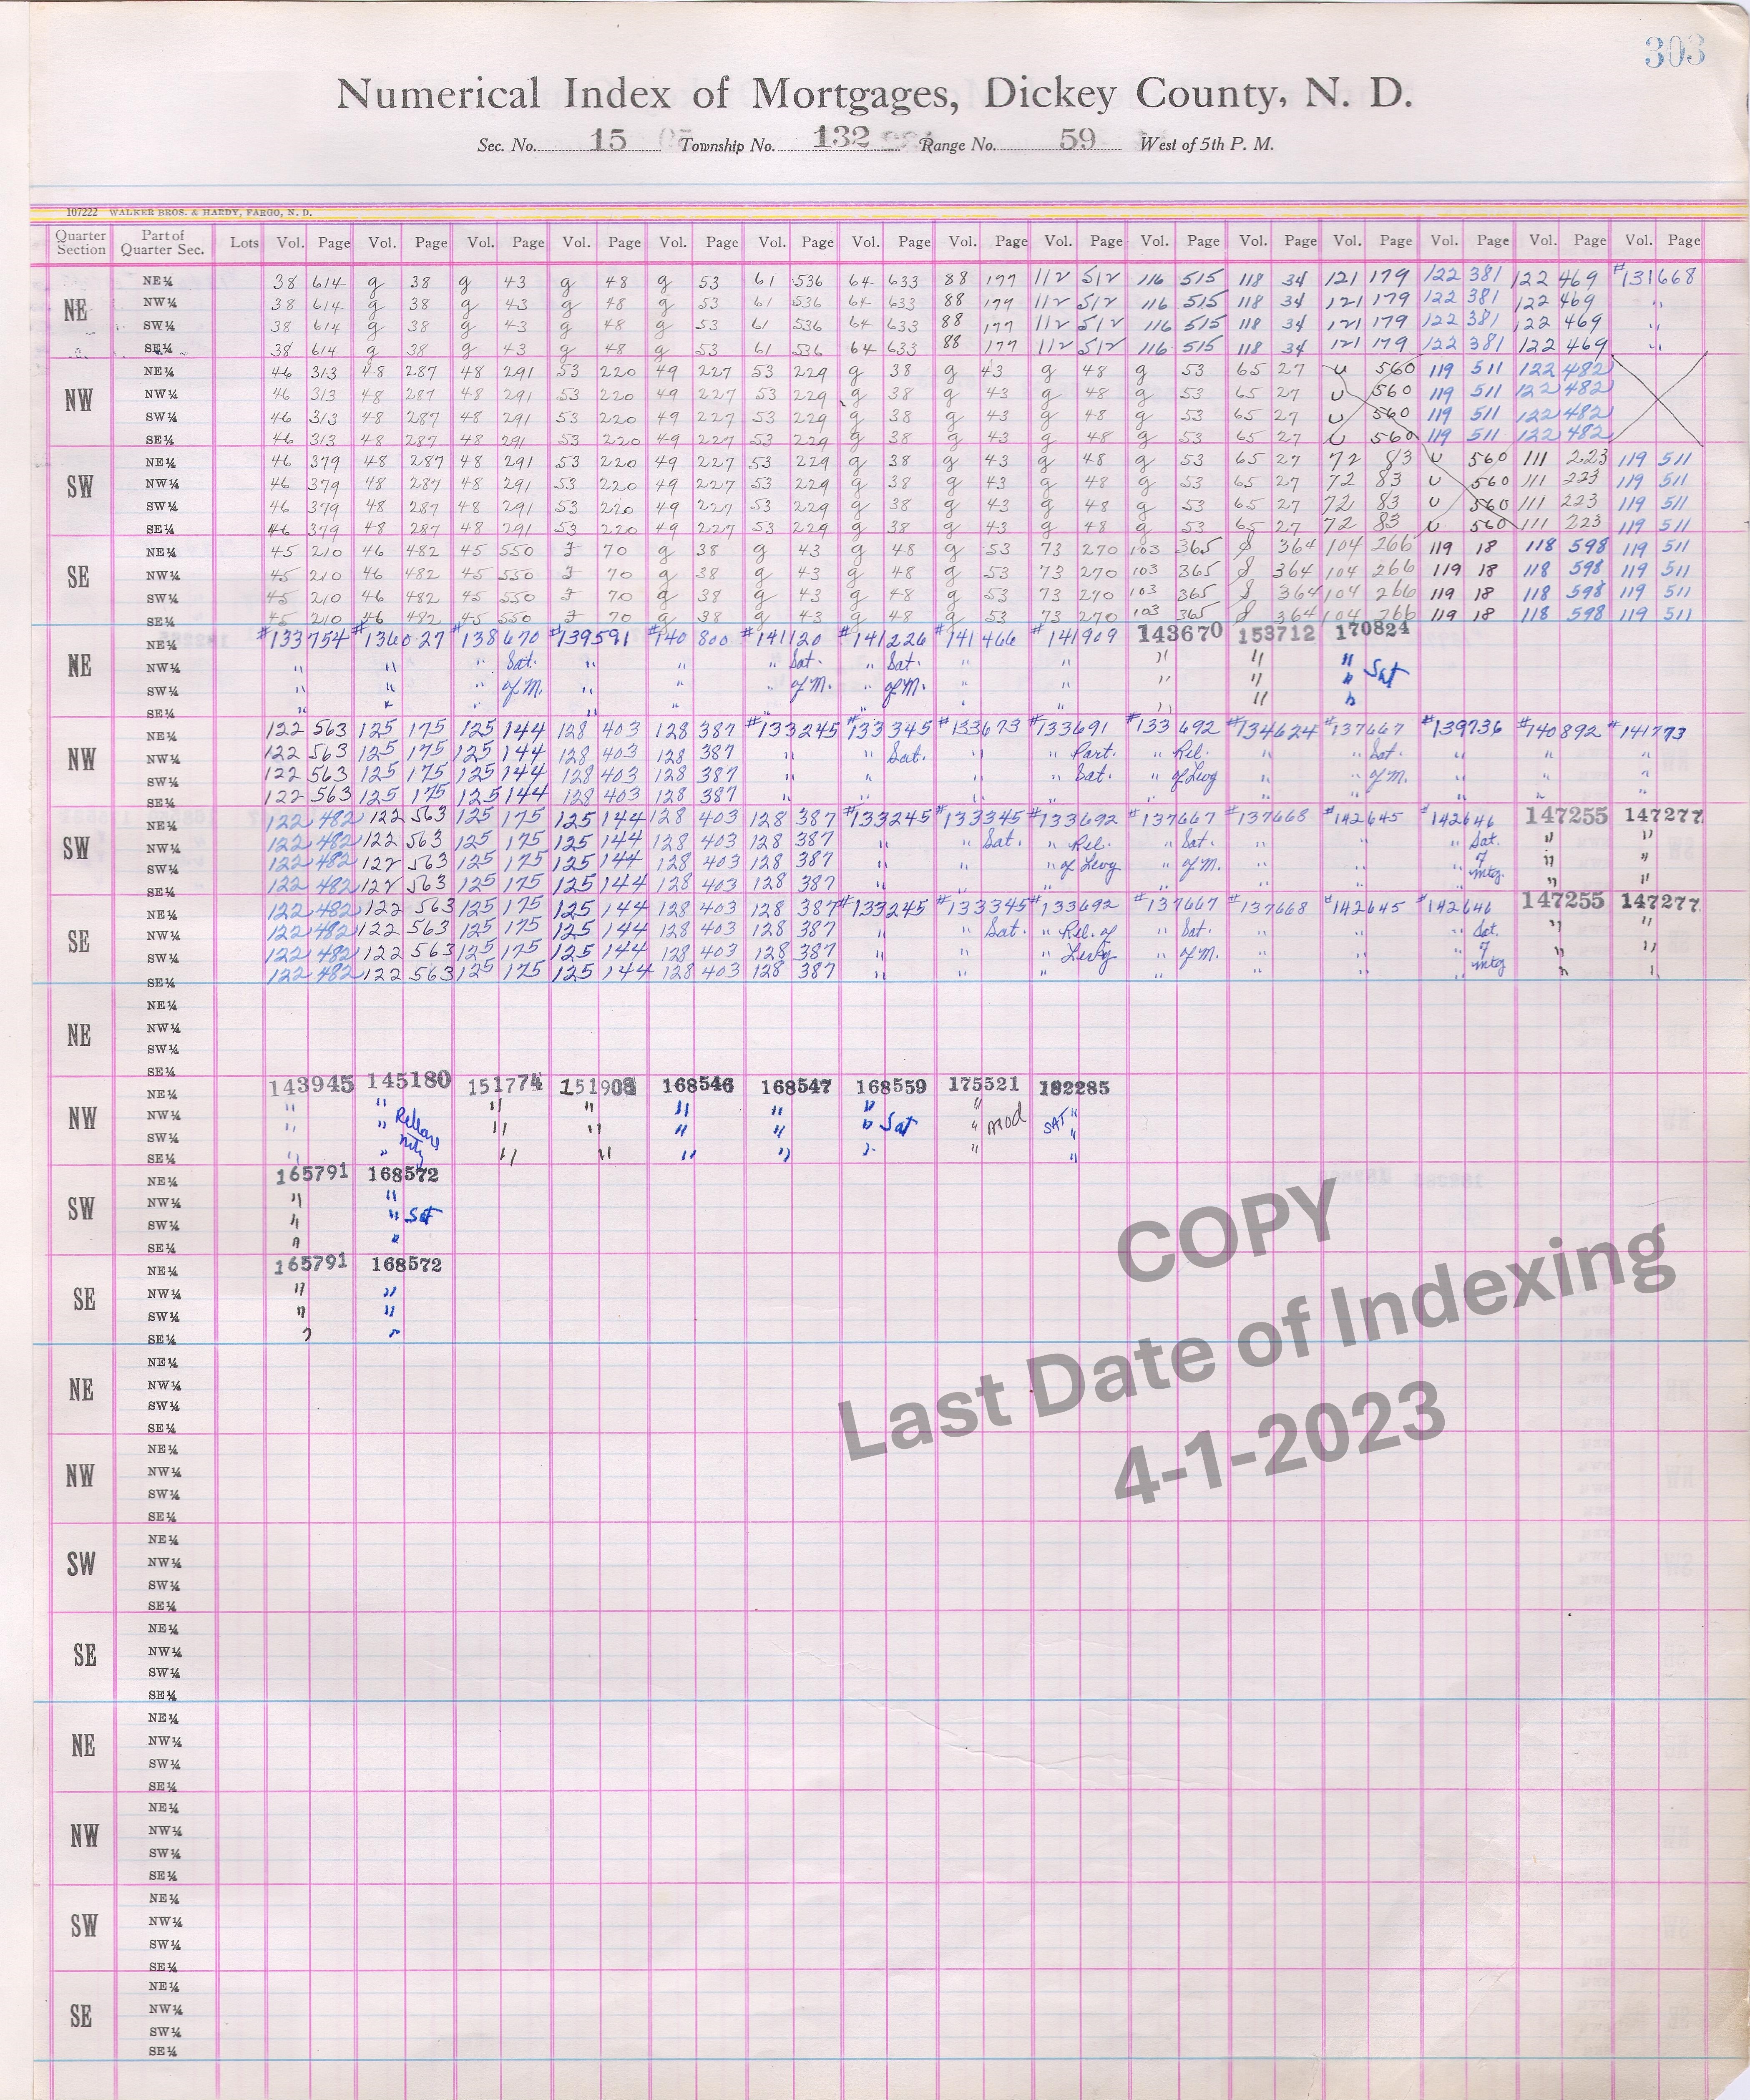 303
Numerical Index of Mortgages, Dickey County, N. D.
Sec. No. 15 Township No. 132 Range No. 59 West of 5th P. M.
107222 WALKER BROS. & HARDY, FARGO, N. D.
Quarter Section Part of Quarter Sec. Lots Vol. Page Vol. Page Vol. Page Vol. Page Vol. Page Vol. Page Vol. Page Vol. Page Vol. Page Vol. Page Vol. Page Vol. Page Vol. Page Vol. Page Vol. Page
NE NE¼ 38 614 g 38 g 43 g 48 g 53 61 536 64 633 88 177 112 512 116 515 118 34 121 179 122 381 122 469 #131668
NW¼ 38 614 g 38 g 43 g 48 g 53 61 536 64 633 88 177 112 512 116 515 118 34 121 179 122 381 122 469 "
SW¼ 38 614 g 38 g 43 g 48 g 53 61 536 64 633 88 177 112 512 116 515 118 34 121 179 122 381 122 469 "
SE¼ 38 614 g 38 g 43 g 48 g 53 61 536 64 633 88 177 112 512 116 515 118 34 121 179 122 381 122 469 "
NW NE¼ 46 313 48 287 48 291 53 220 49 227 53 229 g 38 g 43 g 48 g 53 65 27 U 560 119 511 122 482
NW¼ 46 313 48 287 48 291 53 220 49 227 53 229 g 38 g 43 g 48 g 53 65 27 U 560 119 511 122 482
SW¼ 46 313 48 287 48 291 53 220 49 227 53 229 g 38 g 43 g 48 g 53 65 27 U 560 119 511 122 482
SE¼ 46 313 48 287 48 291 53 220 49 227 53 229 g 38 g 43 g 48 g 53 65 27 U 560 119 511 122 482
SW NE¼ 46 379 48 287 48 291 53 220 49 227 53 229 g 38 g 43 g 48 g 53 65 27 72 83 U 560 111 223 119 511
NW¼ 46 379 48 287 48 291 53 220 49 227 53 229 g 38 g 43 g 48 g 53 65 27 72 83 U 560 111 223 119 511
SW¼ 46 379 48 287 48 291 53 220 49 227 53 229 g 38 g 43 g 48 g 53 65 27 72 83 U 560 111 223 119 511
SE¼ 46 379 48 287 48 291 53 220 49 227 53 229 g 38 g 43 g 48 g 53 65 27 72 83 U 560 111 223 119 511
SE NE¼ 45 210 46 482 45 550 70 g 38 g 43 g 48 g 53 73 270 103 365 364 104 266 119 18 118 598 119 511
NW¼ 45 210 46 482 45 550 70 g 38 g 43 g 48 g 53 73 270 103 365 364 104 266 119 18 118 598 119 511
SW¼ 45 210 46 482 45 550 70 g 38 g 43 g 48 g 53 73 270 103 365 364 104 266 119 18 118 598 119 511
SE¼ 45 210 46 482 45 550 70 g 38 g 43 g 48 g 53 73 270 103 365 364 104 266 119 18 118 598 119 511
NE NE¼ #133754 #136027 #138670 #139591 #140800 #141120 #141226 #141466 #141909 143670 153712 170824
NW¼ " " " Sat. " " " Sat. " Sat. " " " " "
SW¼ " " " of M. " " " of M. " of M. " " " " " Sat
SE¼ " " " " " " " " " " " "
NW NE¼ 122 563 125 175 125 144 128 403 128 387 #133245 #133345 #133673 #133691 #133692 #134624 #137667 #139736 #140892 #141773
NW¼ 122 563 125 175 125 144 128 403 128 387 " " Sat. " " Part. " Rel. " " Sat. " " "
SW¼ 122 563 125 175 125 144 128 403 128 387 " " " " Sat. " of Levy " " of M. " " "
SE¼ 122 563 125 175 125 144 128 403 128 387 " " " " " " " " " "
SW NE¼ 122 482 122 563 125 175 125 144 128 403 128 387 #133245 #133345 #133692 #137667 #137668 #142645 #142646 147255 147277
NW¼ 122 482 122 563 125 175 125 144 128 403 128 387 " " Sat. " Rel. " Sat. " " " Sat. " "
SW¼ 122 482 122 563 125 175 125 144 128 403 128 387 " " " of Levy " of M. " " " of " "
SE¼ 122 482 122 563 125 175 125 144 128 403 128 387 " " " " " " " mtg. " "
SE NE¼ 122 482 122 563 125 175 125 144 128 403 128 387 #133245 #133345 #133692 #137667 #137668 #142645 #142646 147255 147277
NW¼ 122 482 122 563 125 175 125 144 128 403 128 387 " " Sat. " Rel. of " Sat. " " " Sat. " "
SW¼ 122 482 122 563 125 175 125 144 128 403 128 387 " " " Levy " of M. " " " of " "
SE¼ 122 482 122 563 125 175 125 144 128 403 128 387 " " " " " " " mtg " "
NE NE¼
NW¼
SW¼
SE¼
NW NE¼ 143945 145180 151774 151908 168546 168547 168559 175521 182285
NW¼ " " Release " " " " " " "
SW¼ " " mtg " " " " " Sat " mod SAT "
SE¼ " " " " " " " " "
SW NE¼ 165791 168572
NW¼ " "
SW¼ " " Sat
SE¼ " "
SE NE¼ 165791 168572
NW¼ " "
SW¼ " "
SE¼ " "
COPY
Last Date of Indexing
4-1-2023
NE NE¼
NW¼
SW¼
SE¼
NW NE¼
NW¼
SW¼
SE¼
SW NE¼
NW¼
SW¼
SE¼
SE NE¼
NW¼
SW¼
SE¼
NE NE¼
NW¼
SW¼
SE¼
NW NE¼
NW¼
SW¼
SE¼
SW NE¼
NW¼
SW¼
SE¼
SE NE¼
NW¼
SW¼
SE¼